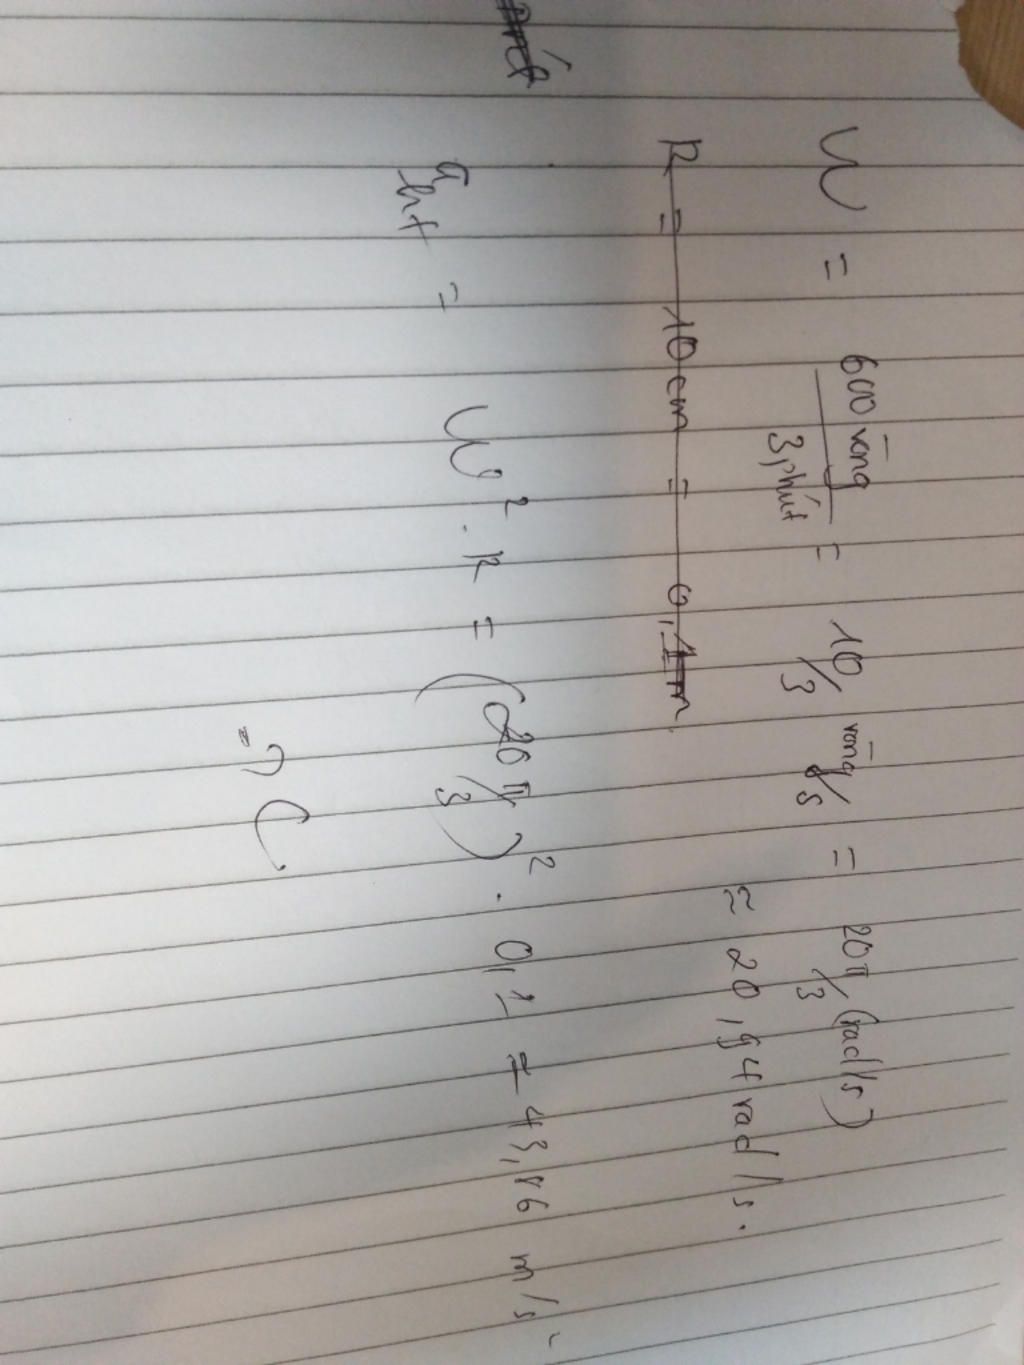 ω = 600 vòng / 3 phút = 10/3 vòng/s = 20π/3 (rad/s)
≈ 20,94 rad/s.
R = 10cm = 0,1m.
aht = ω². R = (20π/3)². 0,1 = 43,86 m/s²
=> C